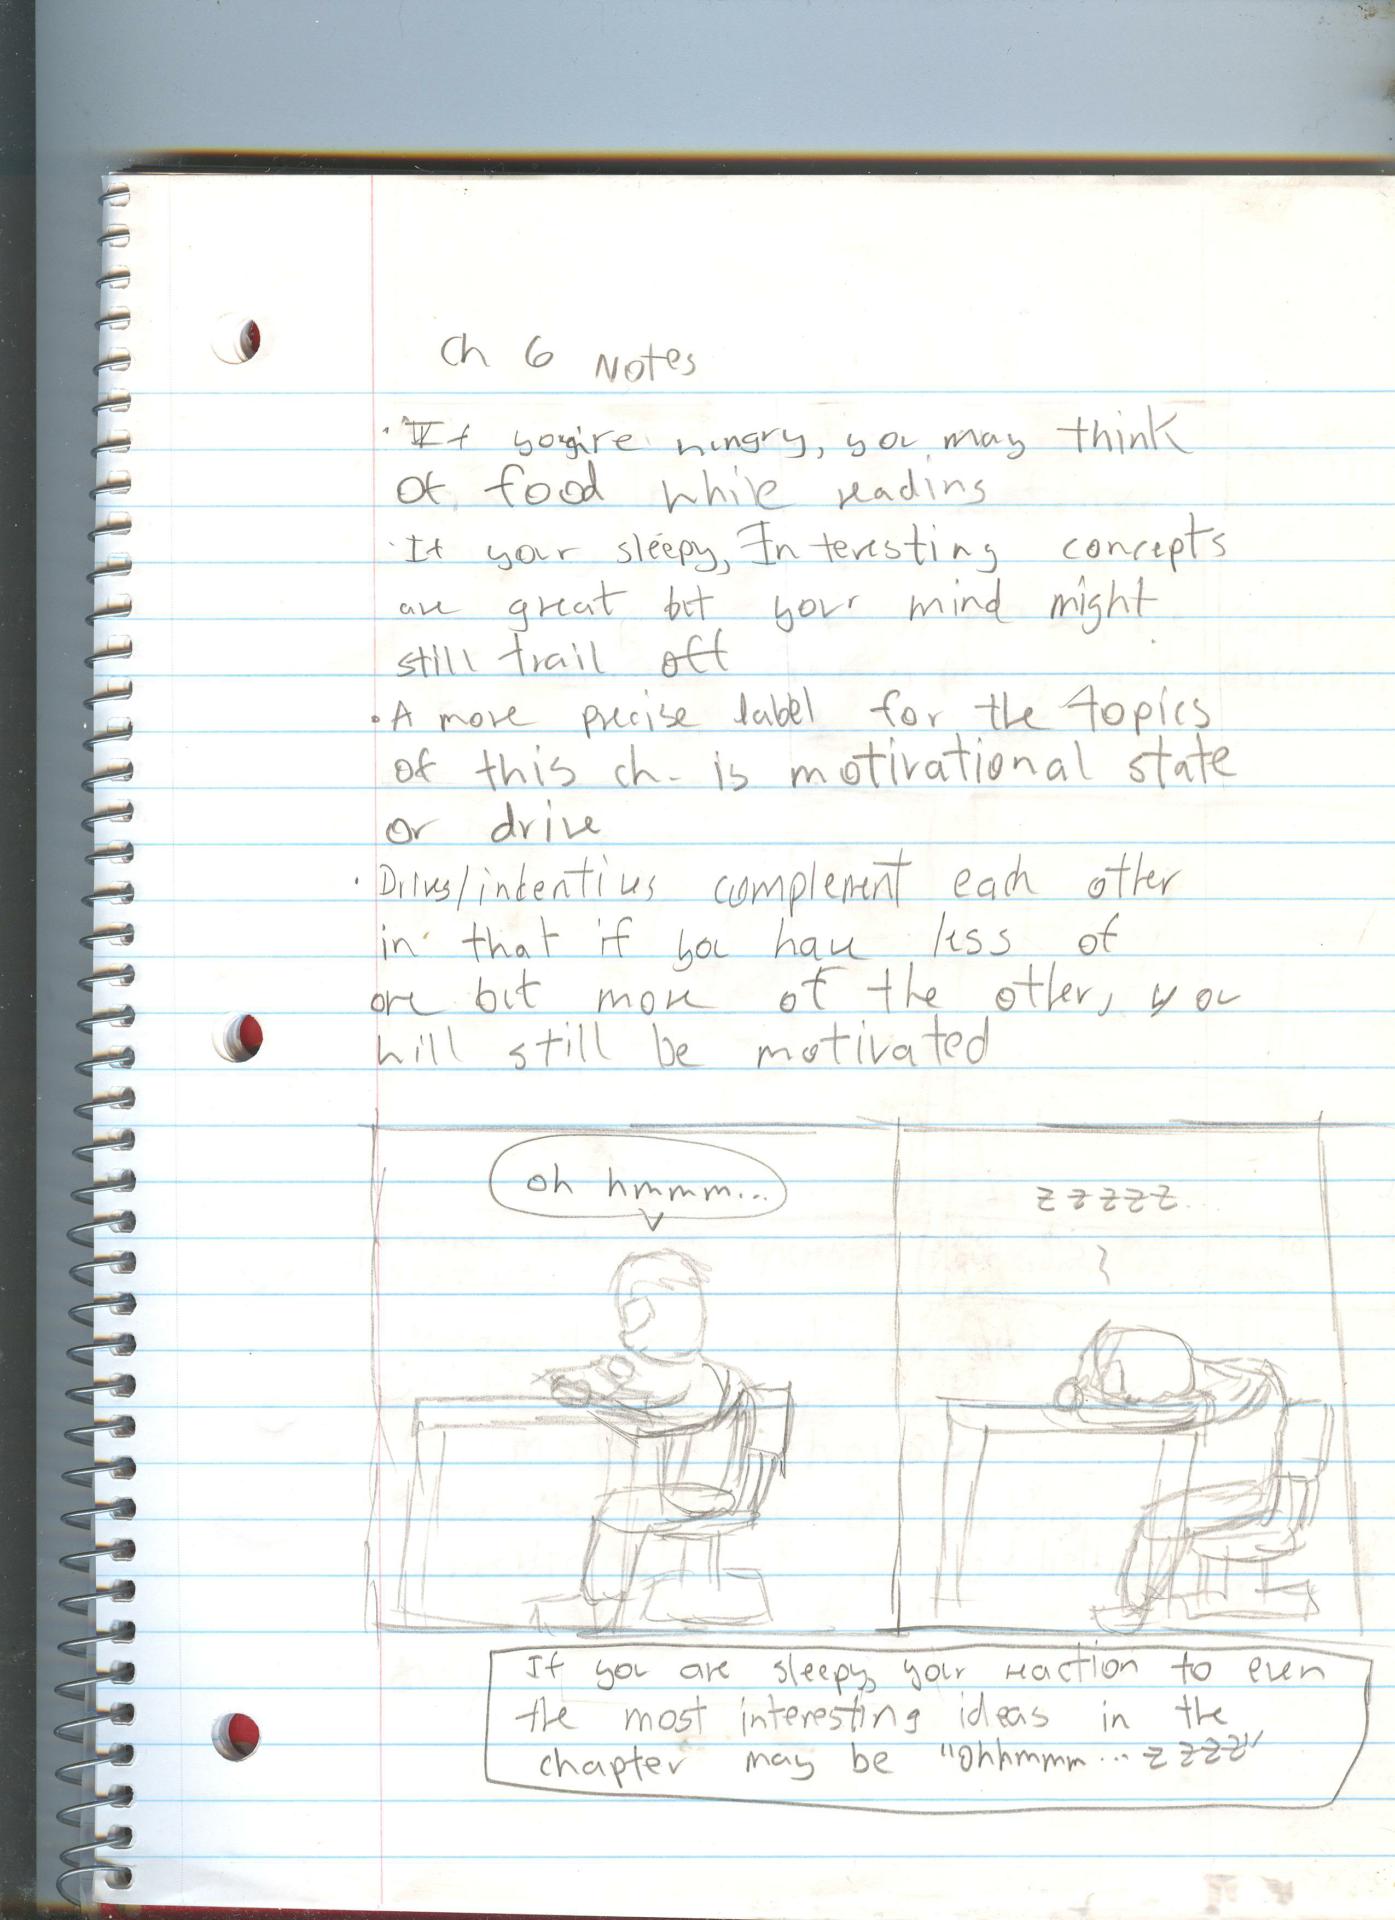 Ch 6 Notes
· If you're hungry, you may think
of food while reading
· If your sleepy, Interesting concepts
are great but your mind might
still trail off
• A more precise label for the topics
of this ch. is motivational state
or drive
· Drives/intentives complement each other
in that if you have less of
one but more of the other, you
will still be motivated
oh hmmm...
zzzzz...
If you are sleepy, your reaction to even
the most interesting ideas in the
chapter may be "ohhmmm... zzzz"